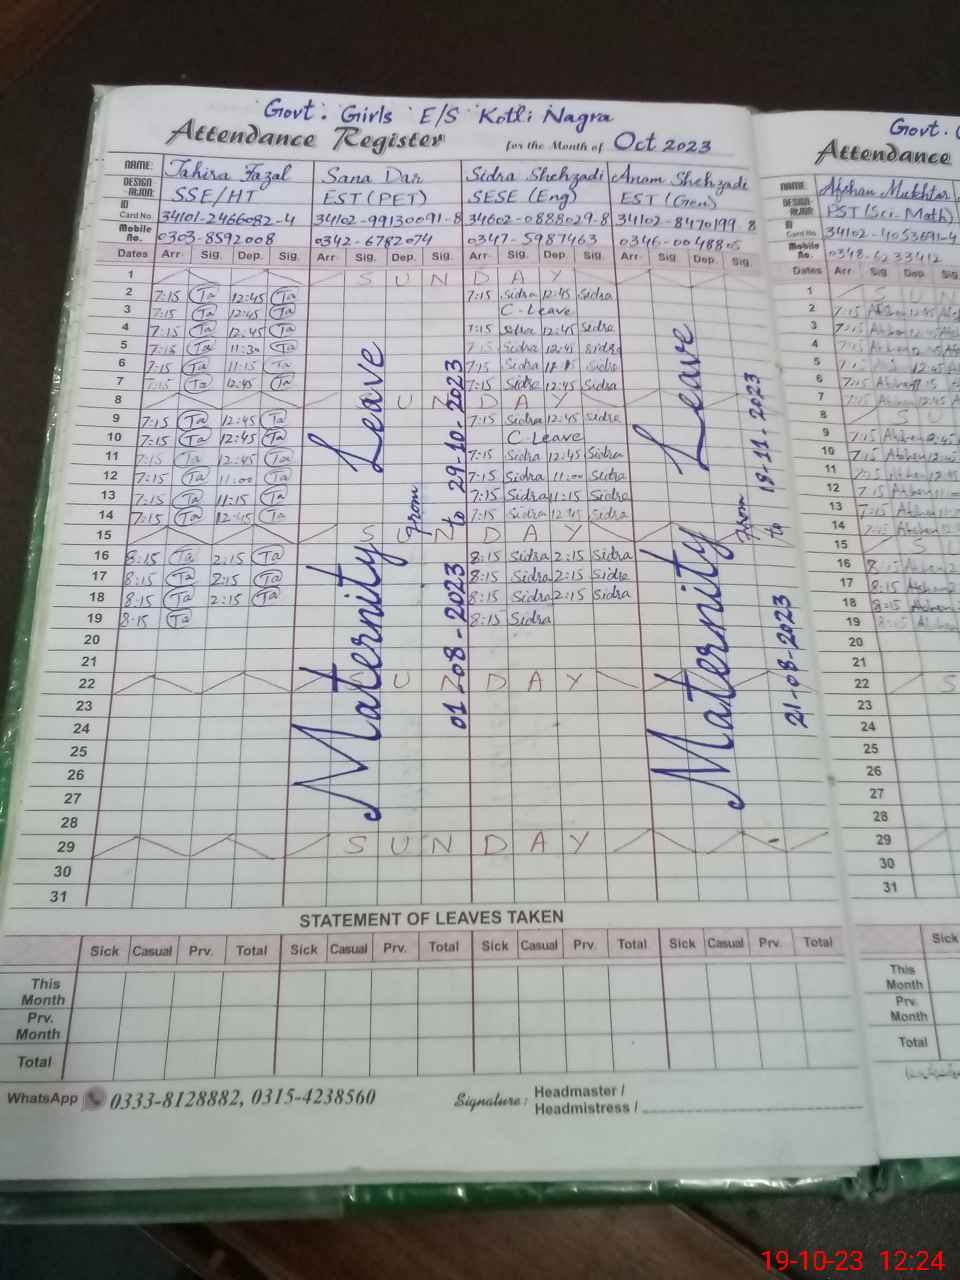 Govt: Girls E/S Kotli Nagra
Attendance Register for the Month of Oct 2023
NAME: Tahira Fazal Sana Dar Sidra Shehzadi Anam Shehzadi
DESIGN AT.ION: SSE/HT EST (PET) SESE (Eng) EST (Gen)
ID Card No 34101-2466082-4 34102-99130091-8 34602-0888029-8 34102-8470199 8
Mobile No. 0303-8592008 0342-6782074 0347-5987463 0346-0048805
Dates Arr. Sig. Dep. Sig. Arr. Sig. Dep. Sig. Arr. Sig. Dep. Sig. Arr. Sig. Dep. Sig.
1 S U N D A Y
2 7:15 Ta 12:45 Ta 7:15 Sidra 12:45 Sidra
3 7:15 Ta 12:45 Ta C-Leave
4 7:15 Ta 12:45 Ta 7:15 Sidra 12:45 Sidra
5 7:15 Ta 11:30 Ta 7:15 Sidra 12:45 Sidra
6 7:15 Ta 11:15 Ta 7:15 Sidra Sidra
7 7:15 Ta 12:45 Ta 7:15 Sidra 12:45 Sidra
8 U N D A Y
9 7:15 Ta 12:45 Ta 7:15 Sidra 12:45 Sidra
10 7:15 Ta 12:45 Ta C-Leave
11 7:15 Ta 12:45 Ta 7:15 Sidra 12:45 Sidra
12 7:15 Ta 11:00 Ta 7:15 Sidra 11:00 Sidra
13 7:15 Ta 11:15 Ta 7:15 Sidra 11:15 Sidra
14 7:15 Ta 12:45 Ta 7:15 Sidra 12:45 Sidra
15 S U N D A Y
16 8:15 Ta 2:15 Ta 8:15 Sidra 2:15 Sidra
17 8:15 Ta 2:15 Ta 8:15 Sidra 2:15 Sidra
18 8:15 Ta 2:15 Ta 8:15 Sidra 2:15 Sidra
19 8-15 Ta 8:15 Sidra
20
21
22 U N D A Y
23
24
25
26
27
28
29 S U N D A Y
30
31
Maternity Leave
From
01-08-2023 to 29-10-2023
Maternity Leave
From
21-08-2023 to 18-11-2023
STATEMENT OF LEAVES TAKEN
Sick Casual Prv. Total Sick Casual Prv. Total Sick Casual Prv. Total Sick Casual Prv. Total
This Month
Prv. Month
Total
WhatsApp 0333-8128882, 0315-4238560 Signature: Headmaster / Headmistress /
Govt.
Attendance
NAME: Afshan Mukhtar
DESIGN AT.ION: PST (Sci-Math)
ID Card No 34102-4053691-4
Mobile No. 0348-6233412
Dates Arr Sig Dep Sig.
1 S U N
2 7:15 Afshan 12:45
3 7:15 Afshan 12:45
4 7:15 Afshan
5 12:45
6 7:15 Afshan
7 7:15 Afshan 12:45
8 S U
9 7:15 Afshan
10 7:15 Afshan
11 Afshan
12 7:15 Afshan
13 7:15 Afshan
14 7:15 Afshan
15 S U
16 8:15 Afshan
17 8:15 Afshan
18 8:15 Afshan
19 8:15 Afshan
20
21
22 S
23
24
25
26
27
28
29
30
31
Sick
This Month
Prv. Month
Total
19-10-23 12:24